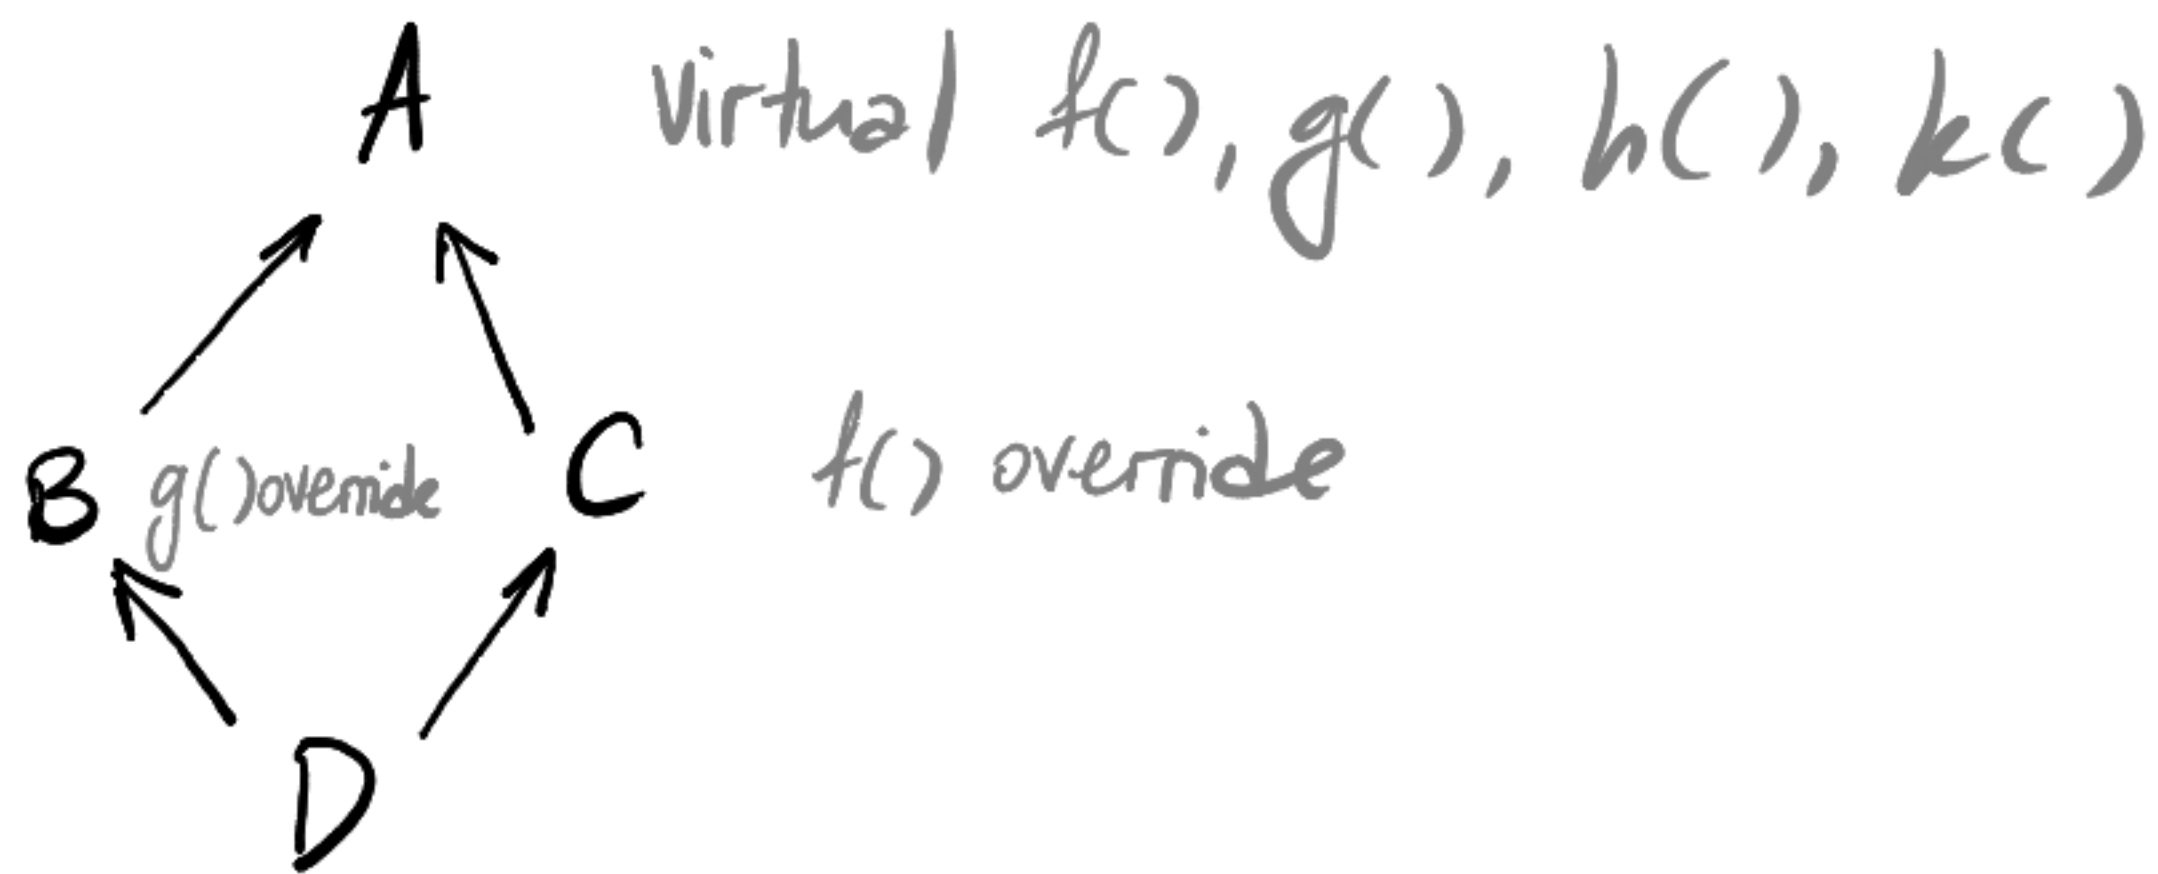 A virtual f(), g(), h(), k()
B g() override C f() override
D